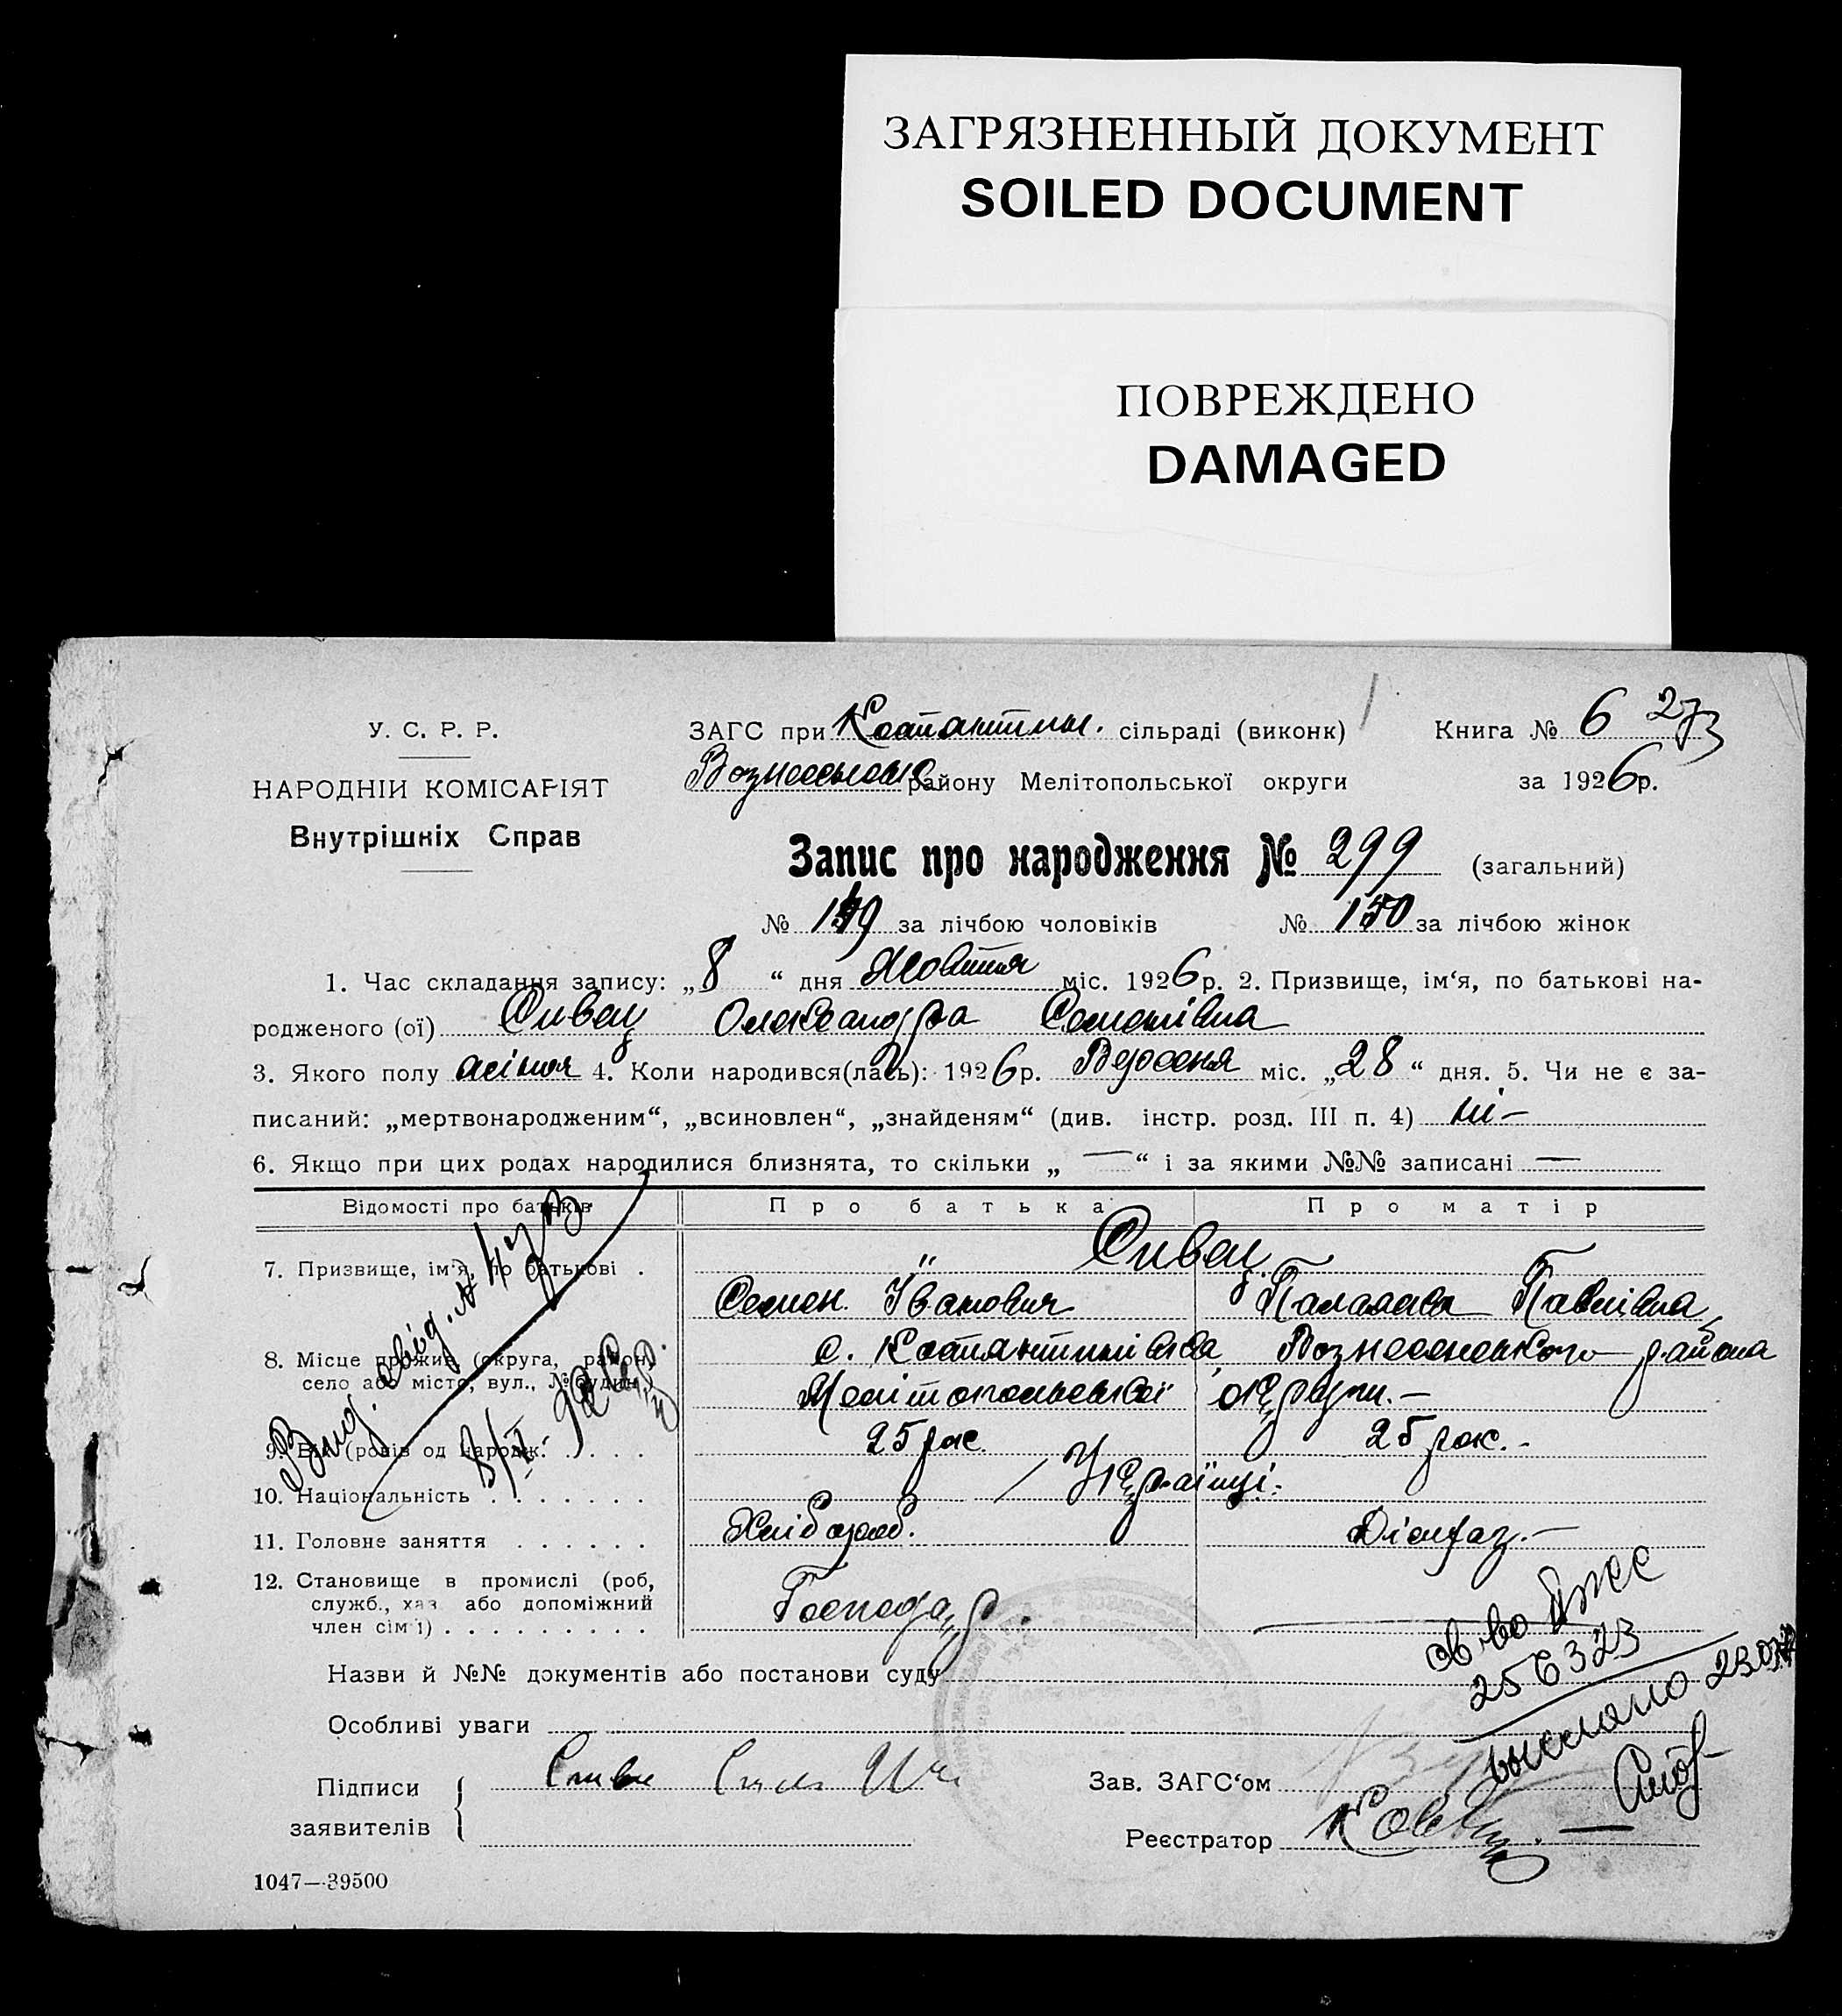 ЗАГРЯЗНЕННЫЙ ДОКУМЕНТ
SOILED DOCUMENT
ПОВРЕЖДЕНО
DAMAGED
У. С. Р. Р.
НАРОДНІЙ КОМІСАРІЯТ
Внутрішніх Справ
ЗАГС при Костянтин. сільраді (виконк) Книга № 6 273
району Мелітопольської округи за 1926 р.
Запис про народження № 299 (загальний)
№ 149 за лічбою чоловіків № 150 за лічбою жінок
1. Час складання запису: „8“ дня Жовтня міс. 1926 р. 2. Призвище, ім‘я, по батькові на-
родженого (ої) Сивец Олександра Семенівна
3. Якого полу жіноч 4. Коли народився(лась): 1926 р. Вересня міс. „28“ дня. 5. Чи не є за-
писаний: „мертвонародженим“, „всиновлен“, „знайденям“ (див. інстр. розд. III п. 4) ні —
6. Якщо при цих родах народилися близнята, то скільки „—“ і за якими №№ записані —
Відомості про батьків Про батька Про матір
7. Призвище, ім‘я, по батькові . „ Сивец
Семен Іванович Палажка Павлівна
8. Місце прожив. (округа, район, с. Костянтинівка Вознесенського района
село або місто, вул., № будин. Мелітопольської округи. —
9. Вік (років од народж. . . . . . 25 рок. 25 рок. -
10. Національність . . . . . . . Українці.
11. Головне заняття . . . . . . Хлібороб. Домгаз. —
12. Становище в промислі (роб,
служб., хаз. або допоміжний Господар. —
член сім‘ї) . . . . . . . . .
Вид. свід. № 473
Назви й №№ документів або постанови суду
св-во
256323
выслано
Особливі уваги
Підписи
заявителів
Зав. ЗАГС‘ом
Реєстратор
1047—39500